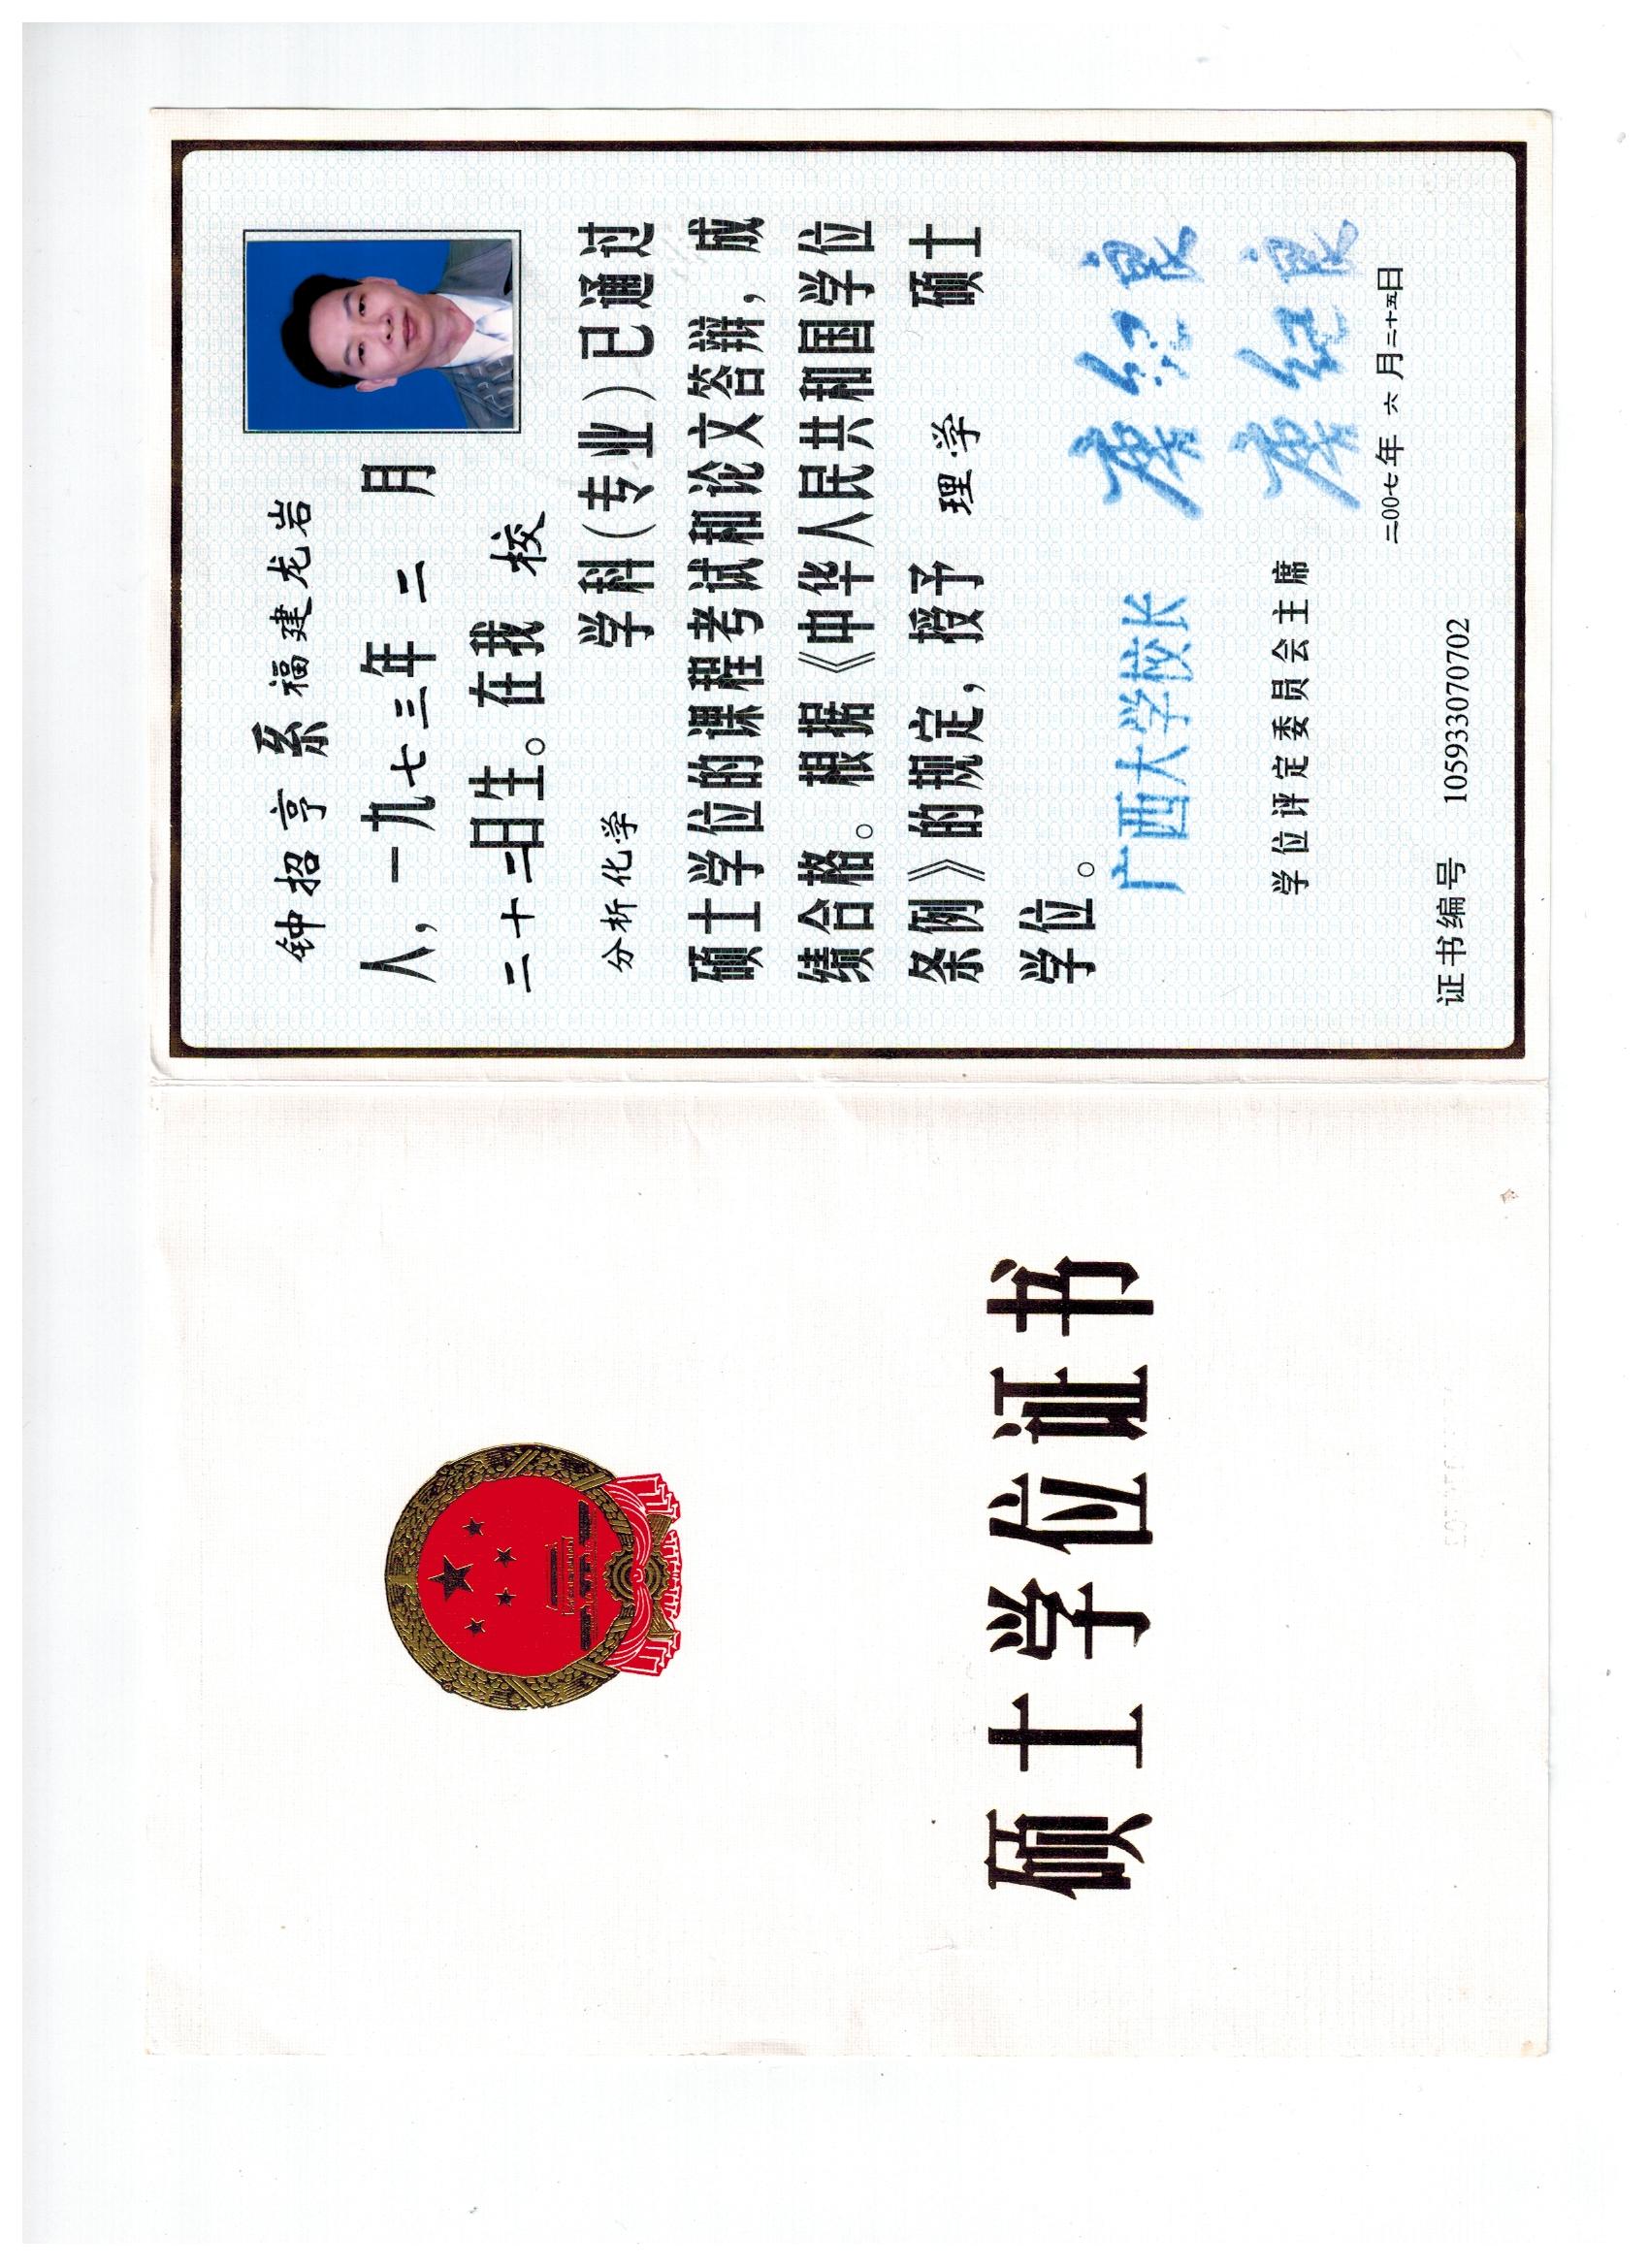 硕士学位证书
钟招亨 系 福建龙岩
人，一九七三年 二 月
二十二日生。在我 校
分析化学 学科(专业)已通过
硕士学位的课程考试和论文答辩，成
绩合格。根据《中华人民共和国学位
条例》的规定，授予 理学 硕士
学位。
广西大学校长 唐纪良
学位评定委员会主席 唐纪良
二00七年 六 月二十五日
证书编号 105933070702